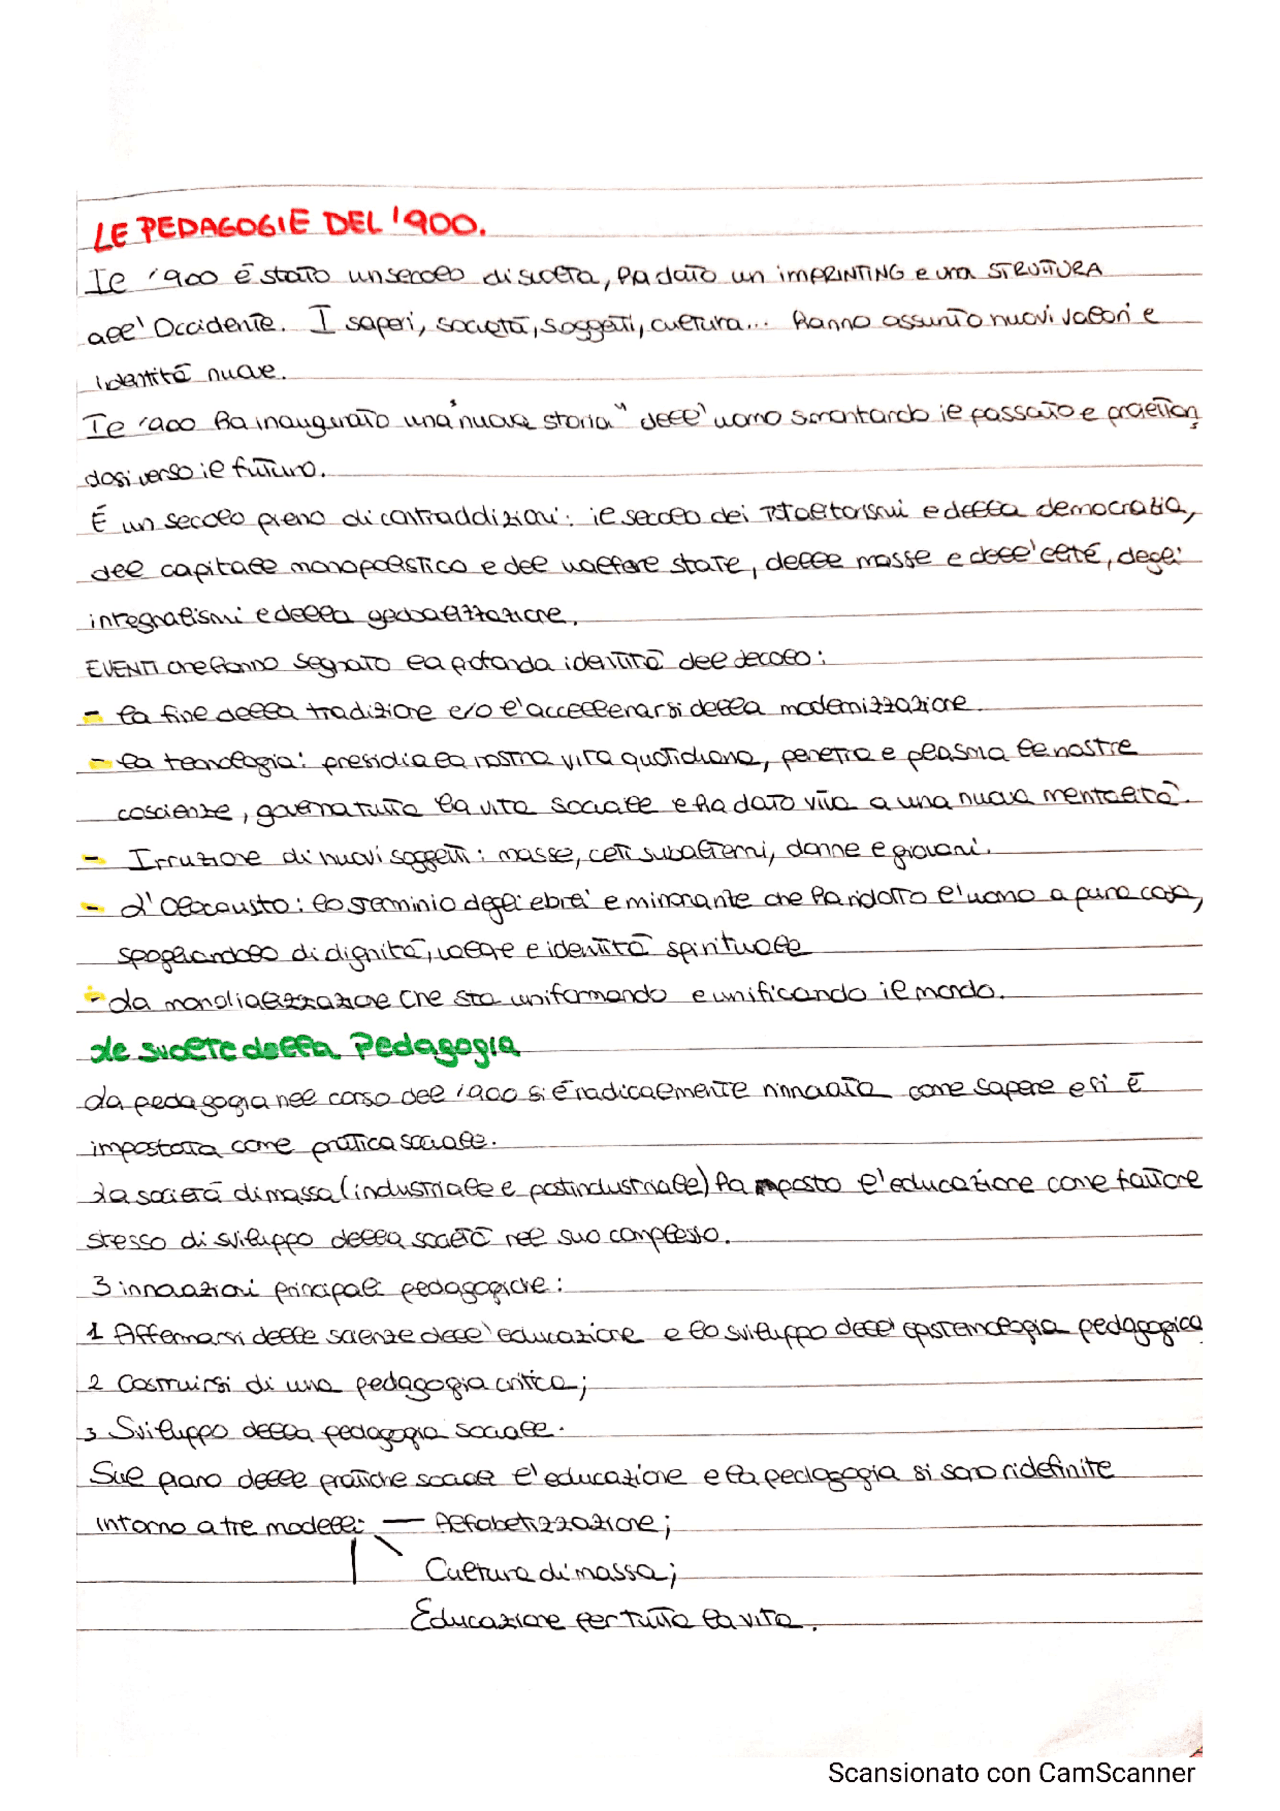 LE PEDAGOGIE DEL '900.
Il '900 è stato un secolo di svolta, ha dato un imPRINTING e una STRUTTURA
all' Occidente. I saperi, società, soggetti, cultura... hanno assunto nuovi valori e
identità nuove.
Il '900 ha inaugurato una "nuova storia" dell' uomo smontando il passato e proiettan
dosi verso il futuro.
È un secolo pieno di contraddizioni: il secolo dei totalitarismi e della democrazia,
del capitale monopolistico e del welfare state, delle masse e dell'elité, degli
integralismi e della globalizzazione.
EVENTI che hanno segnato la profonda identità del secolo:
- la fine della tradizione e/o l'accellerarsi della modernizzazione.
- la tecnologia: presidia la nostra vita quotidiana, penetra e plasma le nostre
coscienze, governa tutta la vita sociale e ha dato vita a una nuova mentalità.
- Irruzione di nuovi soggetti: masse, ceti subalterni, donne e giovani.
- L'Olocausto: lo sterminio degli ebrei e minoranze che ha ridotto l'uomo a pura cosa,
spogliandolo di dignità, valore e identità spirituale
- La mondializzazione che sta uniformando e unificando il mondo.
Le svolte della Pedagogia
La pedagogia nel corso del '900 si è radicalmente rinnovata come sapere e si è
impostata come pratica sociale.
La società di massa (industriale e postindustriale) ha imposto l'educazione come fattore
stesso di sviluppo della società nel suo complesso.
3 innovazioni principali pedagogiche:
1 Affermarsi delle scienze dell'educazione e lo sviluppo dell' epistemologia pedagogica
2 Costruirsi di una pedagogia critica;
3 Sviluppo della pedagogia sociale.
Sul piano delle pratiche sociali l'educazione e la pedagogia si sono ridefinite
intorno a tre modelli: — Alfabetizzazione;
Cultura di massa;
Educazione per tutta la vita.
Scansionato con CamScanner